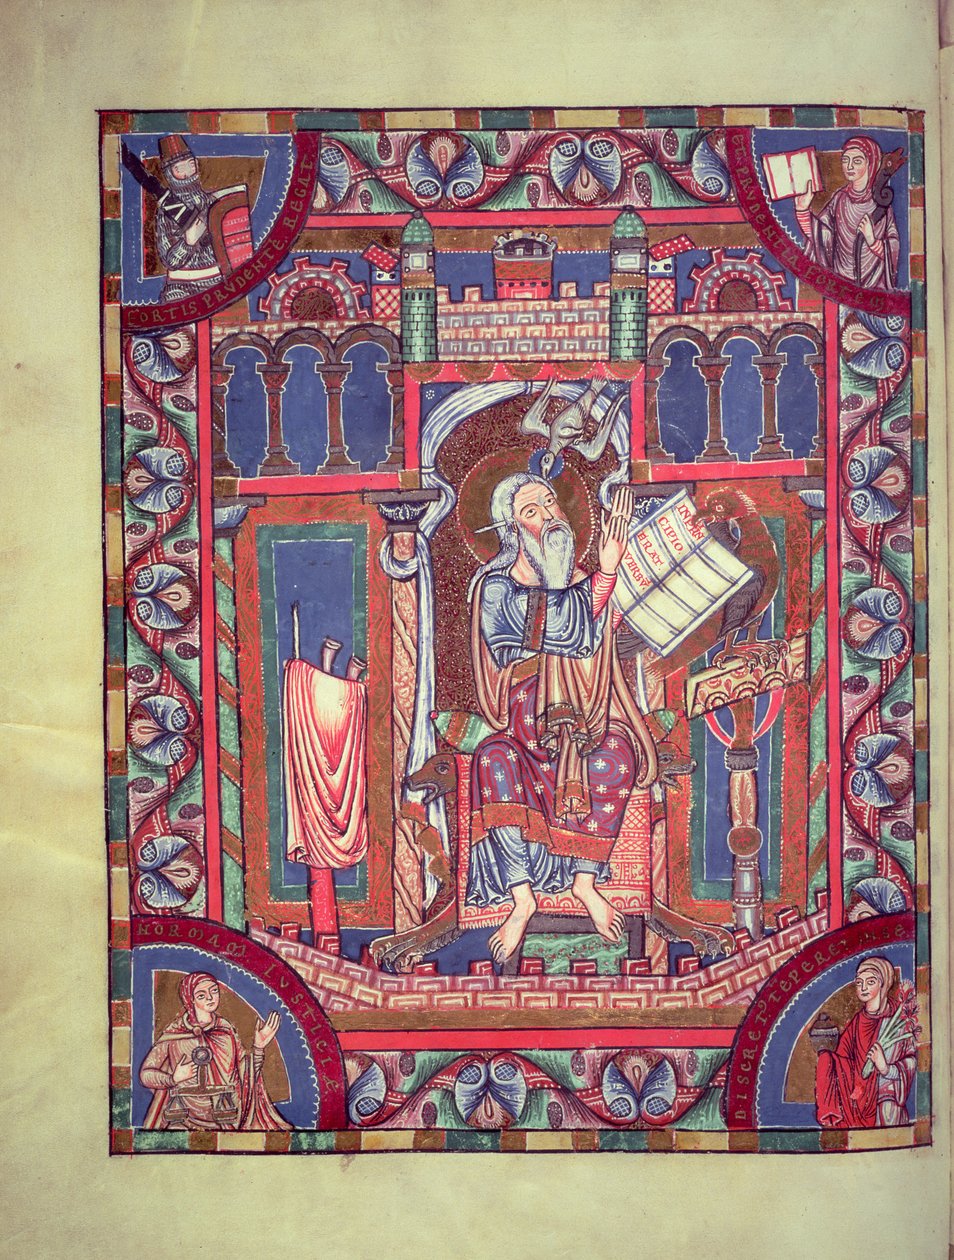 FORTIS PRVDENTE REGAT
PRVDENTIA FORTEM
IN PRIN
CIPIO.
ERAT.
VERBV
NORMAM IVSTICIE
TEPERET